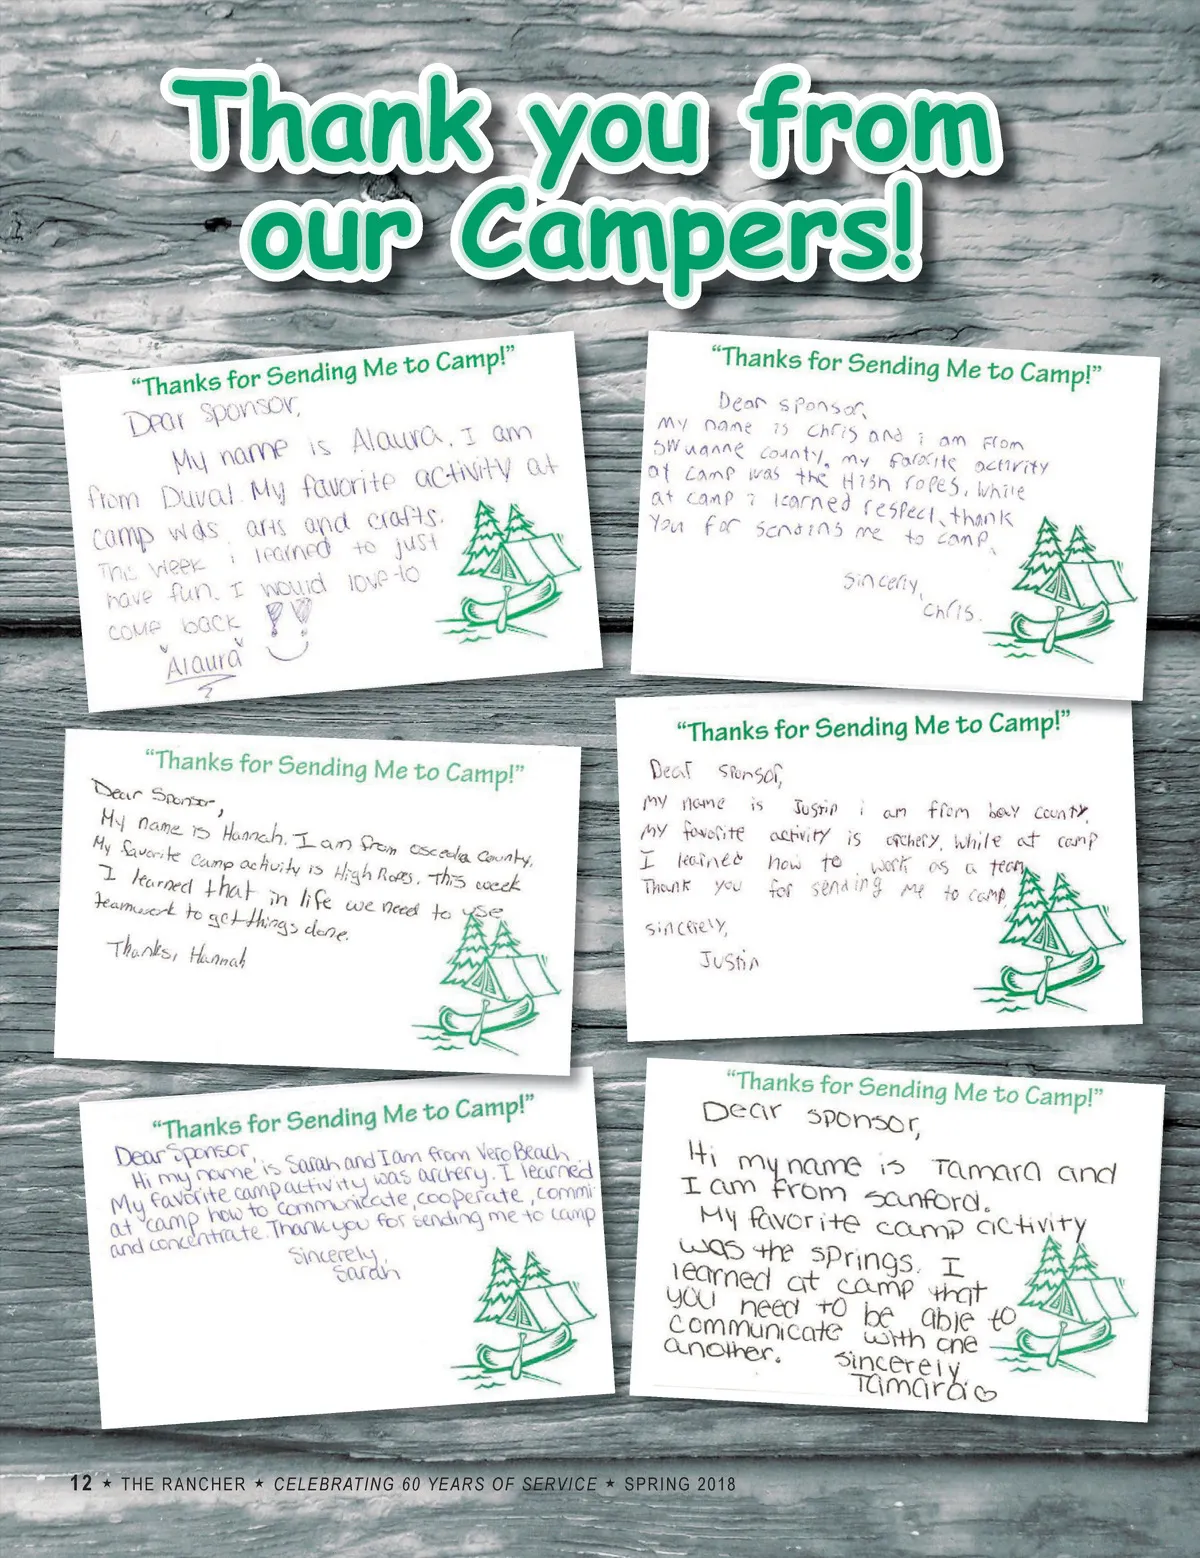 Thank you from
our Campers!
“Thanks for Sending Me to Camp!”
Dear Sponsor,
My name is Alaura. I am
from Duval. My favorite activity at
camp was arts and crafts.
This week i learned to just
have fun. I would love to
come back !!
Alaura
“Thanks for Sending Me to Camp!”
Dear sponsor,
My name is Chris and i am from
SWuanne county. my faroite activity
at camp was the High ropes. While
at camp i learned respect. thank
you for sending me to camp.
Sincerly,
Chris.
“Thanks for Sending Me to Camp!”
Dear Sponsor,
My name is Hannah. I am from osceola County.
My favorite camp activity is High Ropes. This week
I learned that in life we need to use
teamwork to get things done.
Thanks, Hannah
“Thanks for Sending Me to Camp!”
Dear sponsor,
my name is Justin i am from bay county.
my favorite activity is archery. While at camp
I learned how to work as a team
Thank you for sending me to camp.
sincerely,
Justin
“Thanks for Sending Me to Camp!”
Dear Sponsor,
Hi my name is Sarah and I am from Vero Beach.
My favorite camp activity was archery. I learned
at camp how to communicate, cooperate, commi-
and concentrate. Thank you for sending me to camp
Sincerely,
Sarah
“Thanks for Sending Me to Camp!”
Dear sponsor,
Hi my name is Tamara and
I am from sanford.
My favorite camp activity
was the springs. I
learned at camp that
you need to be able to
communicate with one
another. Sincerely
Tamara
12 ★ THE RANCHER ★ CELEBRATING 60 YEARS OF SERVICE ★ SPRING 2018